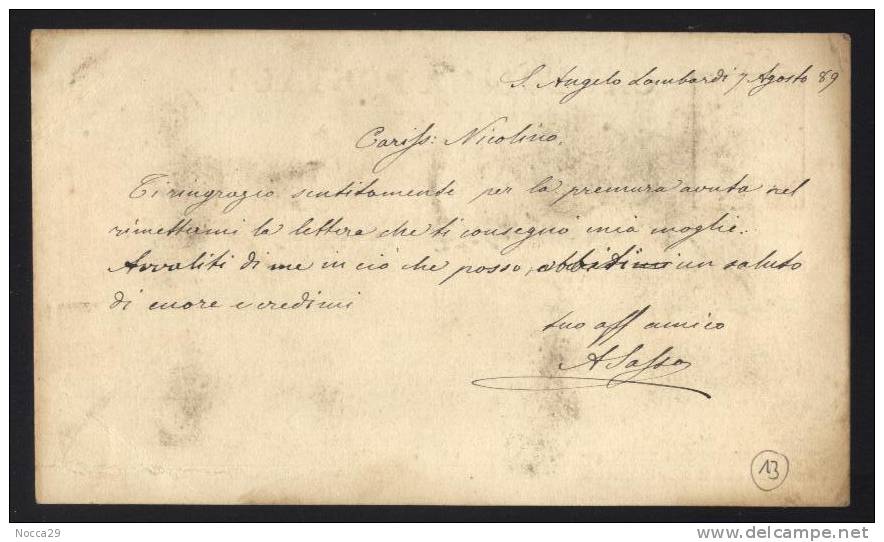 S. Angelo Lombardi 7 Agosto 89
Cariss: Nicolino.
Ti ringrazio sentitamente per la premura avuta nel
rimettermi la lettera che ti consegnò mia moglie.
Avvaliti di me in ciò che posso, abbitimi un saluto
di cuore e credimi
tuo aff amico
A Sasso
13
Nocca29
delcampe.net